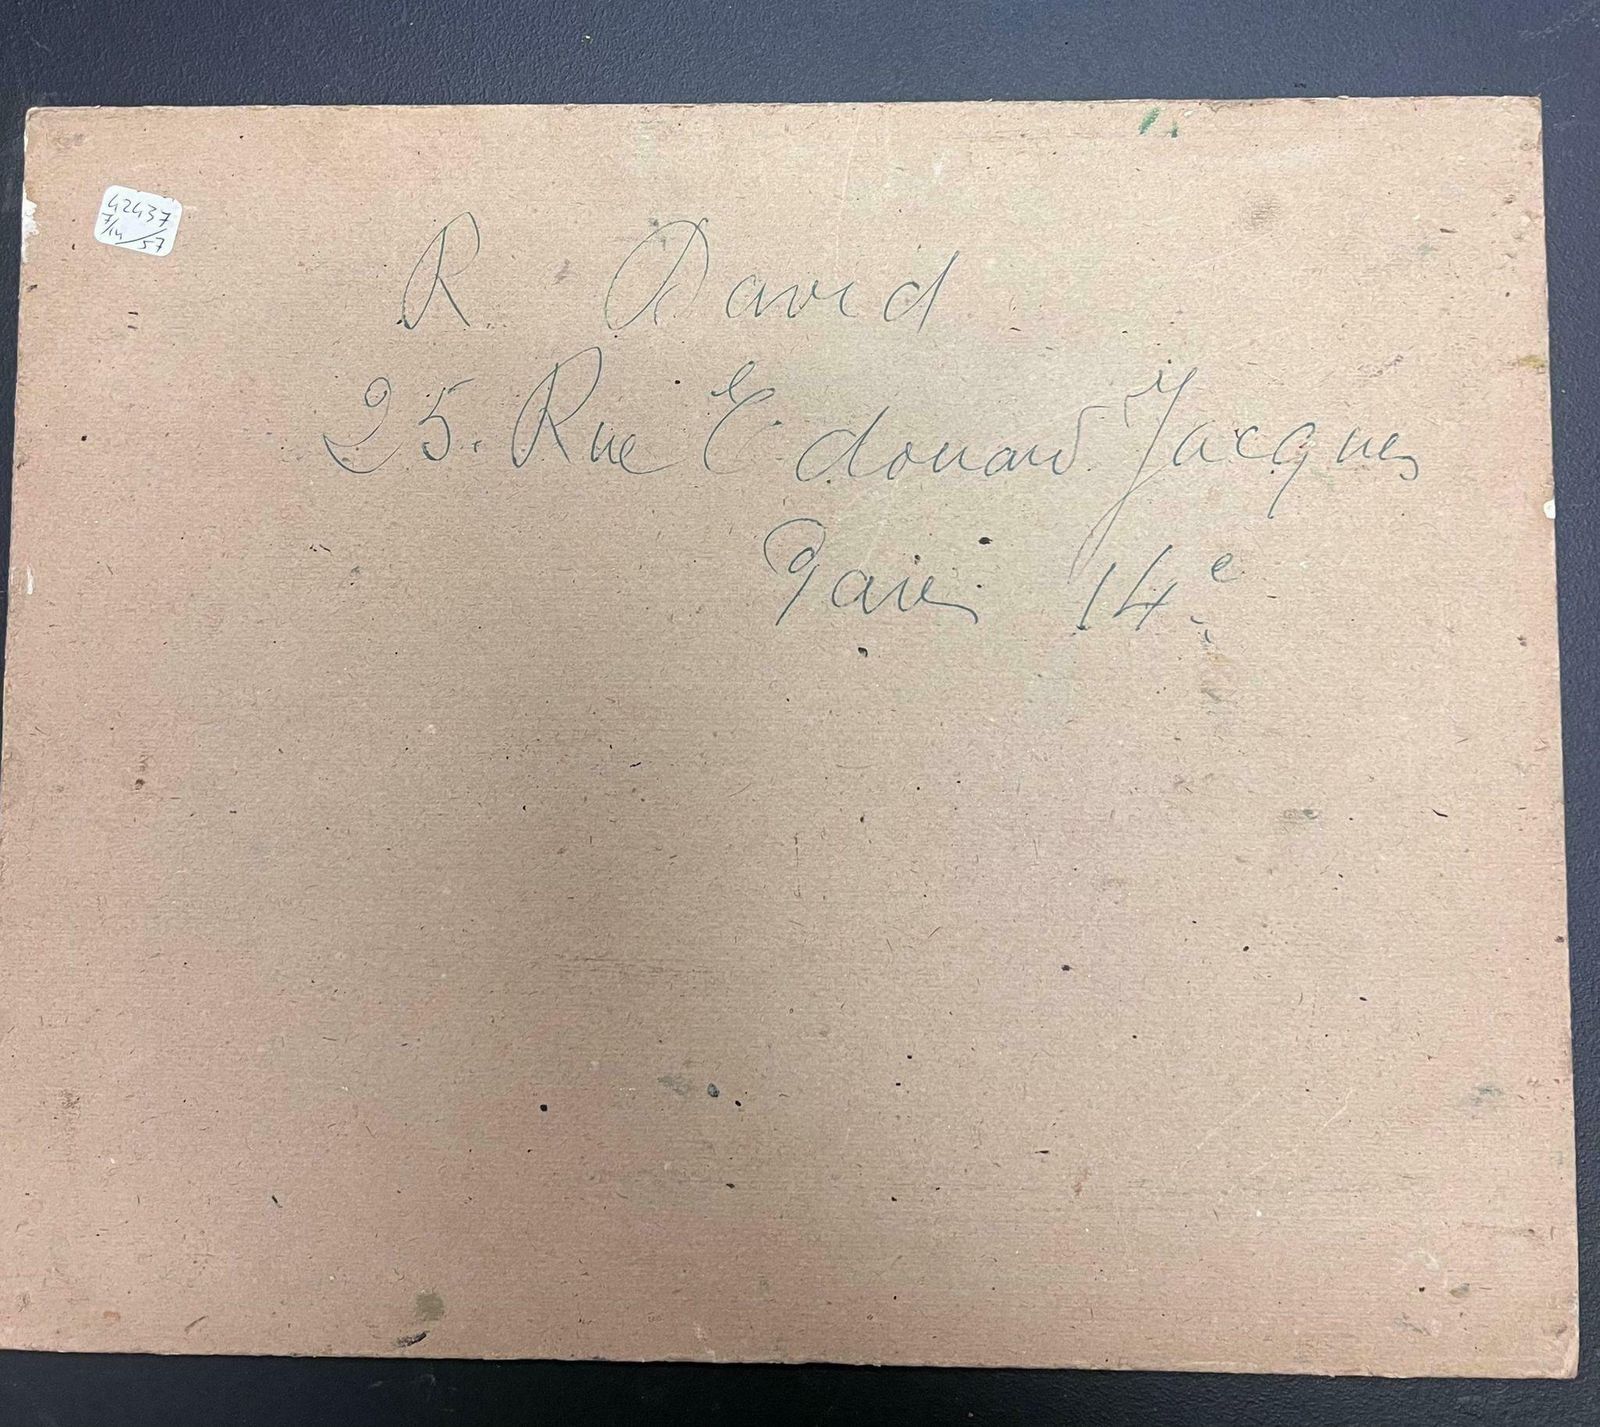 42437
7/14/57
R David
25. Rue Edouard Jacques
Paris 14e